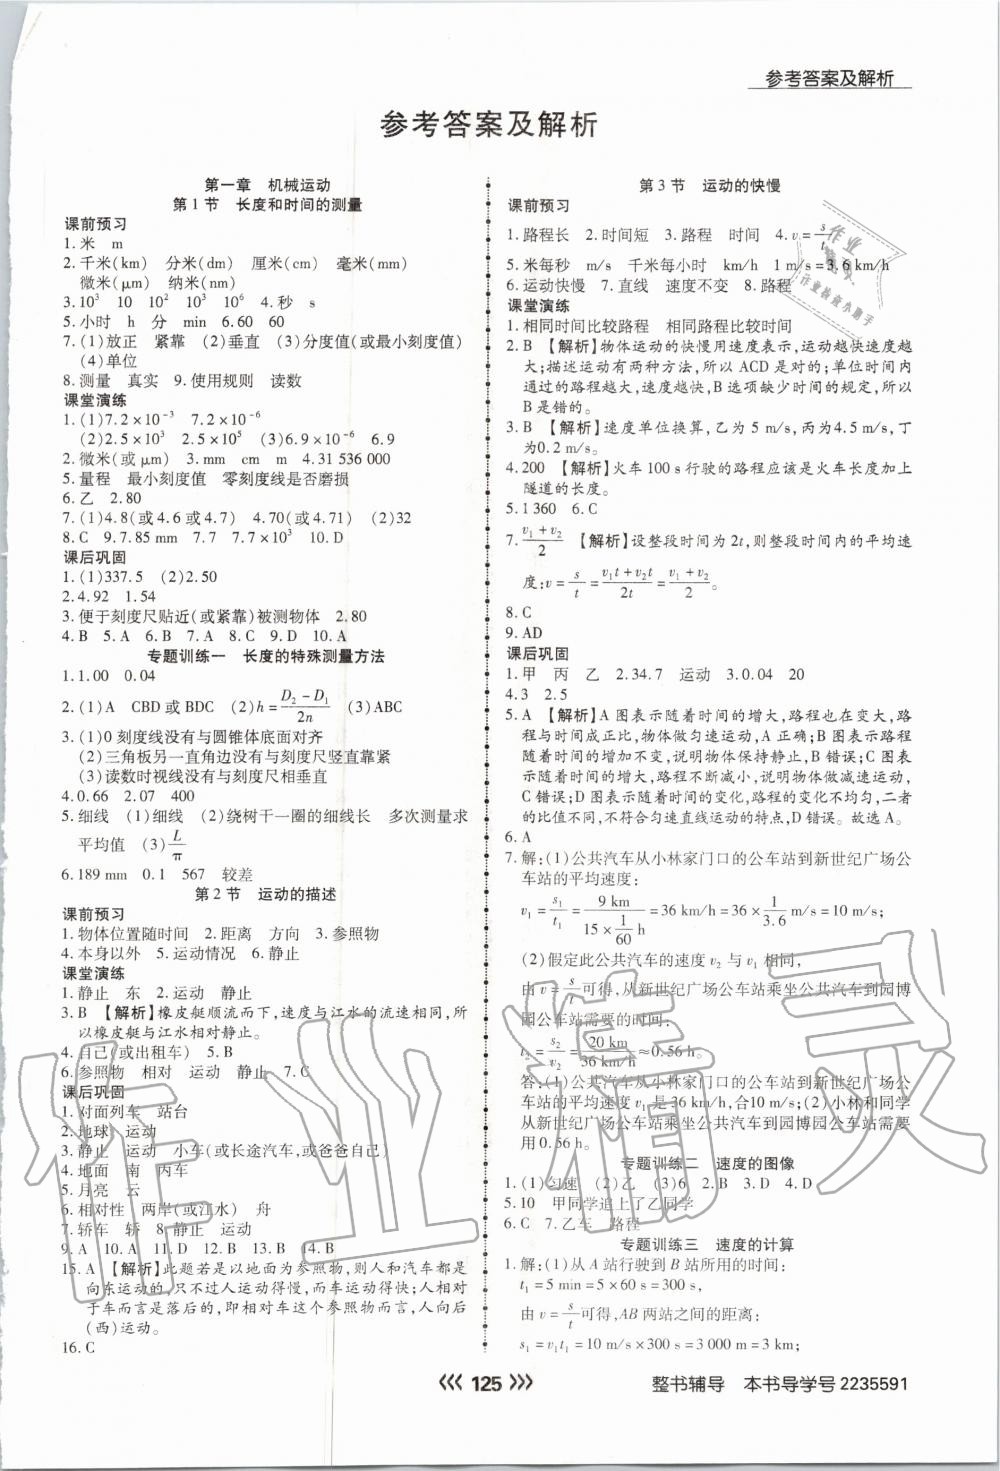 参考答案及解析
参考答案及解析
第一章　机械运动
第1节　长度和时间的测量
课前预习
1.米　m
2.千米(km)　分米(dm)　厘米(cm)　毫米(mm)
微米(μm)　纳米(nm)
3.10³　10　10²　10³　10⁶　4.秒　s
5.小时　h　分　min　6.60　60
7.(1)放正　紧靠　(2)垂直　(3)分度值(或最小刻度值)
(4)单位
8.测量　真实　9.使用规则　读数
课堂演练
1.(1)7.2×10⁻³　7.2×10⁻⁶
(2)2.5×10³　2.5×10⁵　(3)6.9×10⁻⁶　6.9
2.微米(或μm)　3.mm　cm　m　4.31 536 000
5.量程　最小刻度值　零刻度线是否磨损
6.乙　2.80
7.(1)4.8(或4.6或4.7)　4.70(或4.71)　(2)32
8.C　9.7.85 mm　7.7　7.7×10³　10.D
课后巩固
1.(1)337.5　(2)2.50
2.4.92　1.54
3.便于刻度尺贴近(或紧靠)被测物体　2.80
4.B　5.A　6.B　7.A　8.C　9.D　10.A
专题训练一　长度的特殊测量方法
1.1.00　0.04
2.(1)A　CBD或BDC　(2)h=(D₂-D₁)/2n　(3)ABC
3.(1)0刻度线没有与圆锥体底面对齐
(2)三角板另一直角边没有与刻度尺竖直靠紧
(3)读数时视线没有与刻度尺相垂直
4.0.66　2.07　400
5.细线　(1)细线　(2)绕树干一圈的细线长　多次测量求
平均值　(3)L/π
6.189 mm　0.1　567　较差
第2节　运动的描述
课前预习
1.物体位置随时间　2.距离　方向　3.参照物
4.本身以外　5.运动情况　6.静止
课堂演练
1.静止　东　2.运动　静止
3.B　【解析】橡皮艇顺流而下,速度与江水的流速相同,所
以橡皮艇与江水相对静止。
4.自己(或出租车)　5.B
6.参照物　相对　运动　静止　7.C
课后巩固
1.对面列车　站台
2.地球　运动
3.静止　运动　小车(或长途汽车,或爸爸自己)
4.地面　南　丙车
5.月亮　云
6.相对性　两岸(或江水)　舟
7.轿车　轿　8.静止　运动
9.A　10.A　11.D　12.B　13.B　14.B
15.A　【解析】此题若是以地面为参照物,则人和汽车都是
向东运动的,只不过人运动得慢,而车运动得快;人相对
于车而言是落后的,即相对车这个参照物而言,人向后
(西)运动。
16.C
第3节　运动的快慢
课前预习
1.路程长　2.时间短　3.路程　时间　4.v=s/t
5.米每秒　m/s　千米每小时　km/h　1 m/s=3.6 km/h
6.运动快慢　7.直线　速度不变　8.路程
课堂演练
1.相同时间比较路程　相同路程比较时间
2.B　【解析】物体运动的快慢用速度表示,运动越快速度越
大;描述运动有两种方法,所以ACD是对的;单位时间内
通过的路程越大,速度越快,B选项缺少时间的规定,所以
B是错的。
3.B　【解析】速度单位换算,乙为5 m/s,丙为4.5 m/s,丁
为0.2 m/s。
4.200　【解析】火车100 s行驶的路程应该是火车长度加上
隧道的长度。
5.1 360　6.C
7.(v₁+v₂)/2　【解析】设整段时间为2t,则整段时间内的平均速
度:v=s/t=(v₁t+v₂t)/2t=(v₁+v₂)/2。
8.C
9.AD
课后巩固
1.甲　丙　乙　2.34.7　运动　3.0.04　20
4.3　2.5
5.A　【解析】A图表示随着时间的增大,路程也在变大,路
程与时间成正比,物体做匀速运动,A正确;B图表示随着
时间的增加不变,说明物体保持静止,B错误;C图表
示随着时间的增大,路程不断减小,说明物体做减速运动,
C错误;D图表示随着时间的变化,路程的变化不均匀,二者
的比值不同,不符合匀速直线运动的特点,D错误。故选A。
6.A
7.解:(1)公共汽车从小林家门口的公车站到新世纪广场公
车站的平均速度:
v₁=s₁/t₁=9 km/(15×1/60 h)=36 km/h=36×1/3.6 m/s=10 m/s;
(2)假定此公共汽车的速度v₂与v₁相同,
由v=s/t可得,从新世纪广场公车站乘坐公共汽车到园博
园公车站需要的时间:
t₂=s₂/v₂=20 km/(36 km/h)≈0.56 h。
答:(1)公共汽车从小林家门口的公车站到新世纪广场公
车站的平均速度v₁是36 km/h,合10 m/s;(2)小林和同学
从新世纪广场公车站乘坐公共汽车到园博园公车站需要
用0.56 h。
专题训练二　速度的图像
1.(1)匀速　(2)乙　(3)6　2.B　3.D　4.D
5.10　甲同学追上了乙同学
6.C　7.乙车　路程
专题训练三　速度的计算
1.解:(1)从A站行驶到B站所用的时间:
t₁=5 min=5×60 s=300 s,
由v=s/t可得,AB两站之间的距离:
s₁=v₁t₁=10 m/s×300 s=3 000 m=3 km;
《《 125 》》
整书辅导　本书导学号2235591
作业精灵
作业
作业检查小助手